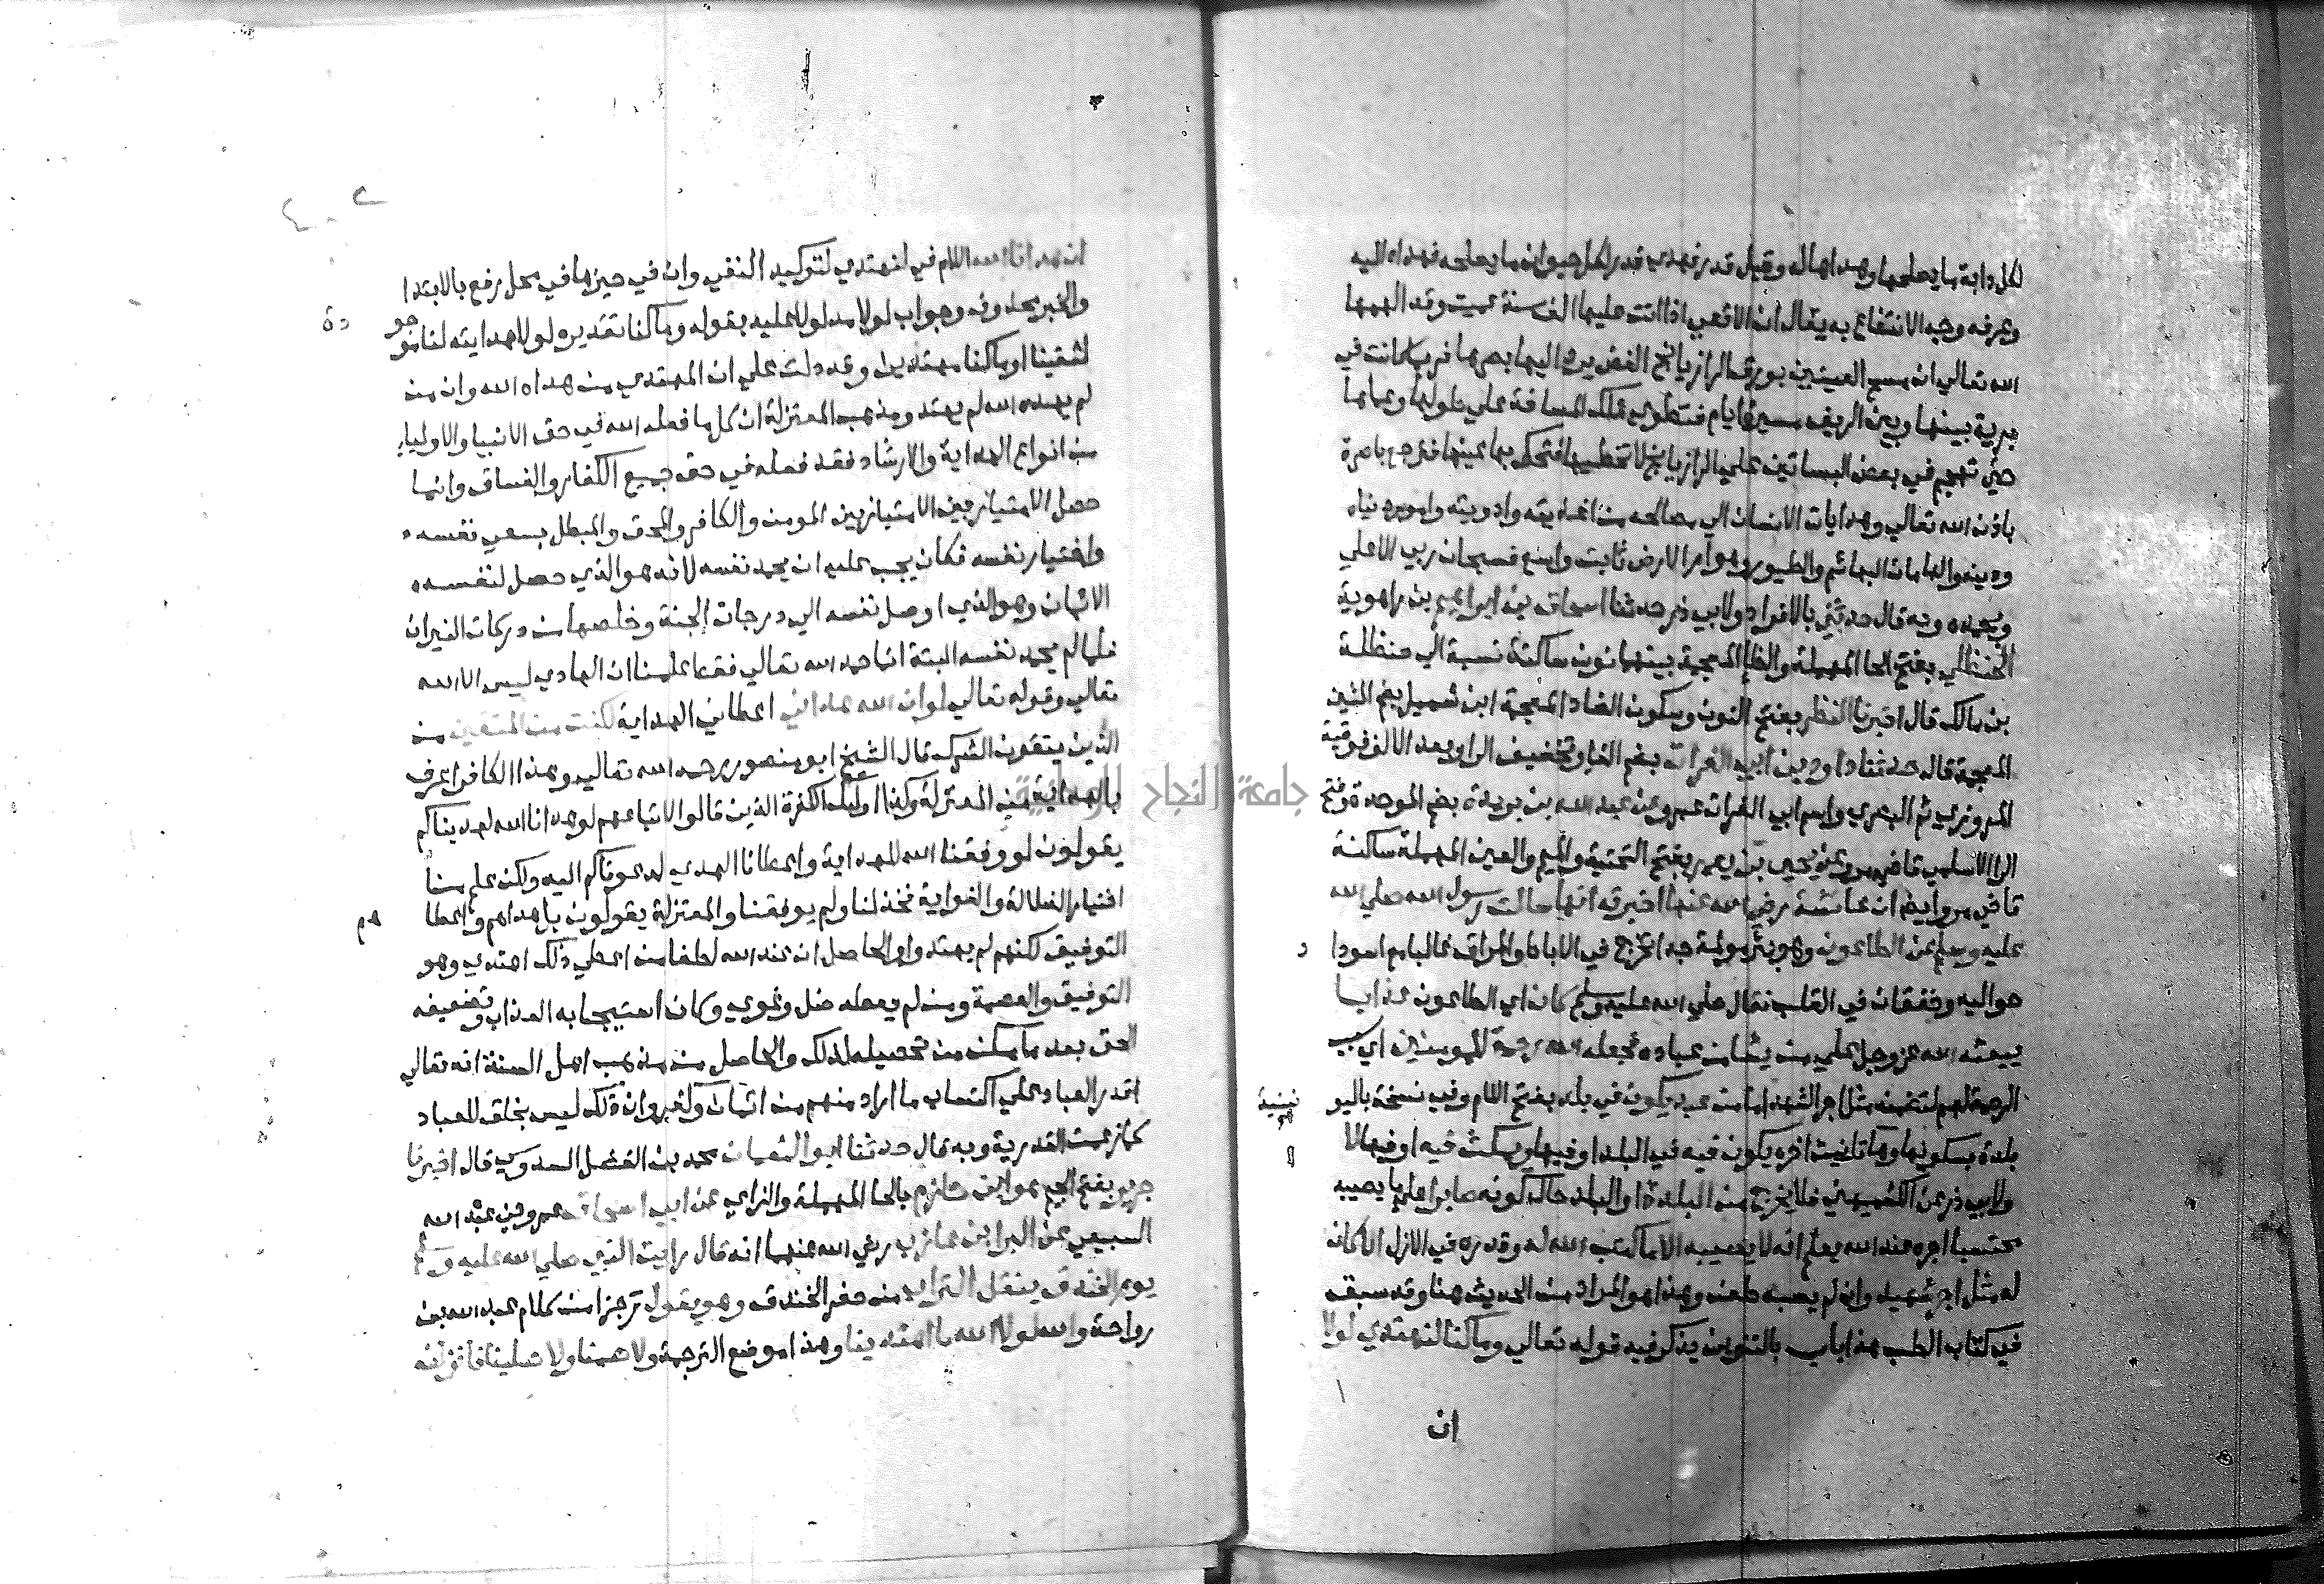 لكل دابة ما يصلحها وهداها له وقيل قدر فهدى قدر لكل حيوان ما يصلحه فهداه اليه
وعرفه وجه الانتفاع به يقال ان الافعى اذا اتت عليها الف سنة عميت وقد الهمها
الله تعالي ان مسح العينين بورق الرازيانج الغض يرد اليها بصرها فربما كانت في
برية بينها وبين الريف مسيرة ايام فتطوي تلك المسافة علي طولها وعماها
حتي تهجم في بعض البساتين علي الرازيانج لا تخطيها فتحك بها عينها فترجع باصرة
باذن الله تعالي وهدايات الانسان الي مصالحه من اغذيته وادويته وامور دنياه
ودينه والهامات البهائم والطيور وهوام الارض ثابت واسع فسبحان ربي الاعلي
وبحمده وبه قال حدثني بالافراد ولابي ذر حدثنا اسحاق بن ابراهيم بن راهوية
الحنظلي بفتح الحا المهملة والظا المعجمة بينهما نون ساكنة نسبة الي حنظلة
بن مالك قال اخبرنا النضر بفتح النون وسكون الضاد المعجمة ابن شميل بضم الشين
المعجمة قال حدثنا داود بن ابي الفرات بضم الفا وتخفيف الرا وبعد الالف فوقية
المروزي ثم البصري واسم ابي الفرات عمرو عن عبد الله بن بريدة بضم الموحدة وفتح
الرا الاسلمي قاضي مرو عن يحيى بن يعمر بفتح التحتية والميم والعين المهملة ساكنة
قاضي مرو ايضا ان عائشة رضي الله عنها اخبرته انها سالت رسول الله صلي الله
عليه وسلم عن الطاعون وهو بثر مولمة جدا تخرج في الاباط والمراق غالبا مع اسودا د
حواليه وخفقان في القلب فقال صلي الله عليه وسلم كان اي الطاعون عذابا
يبعثه الله عز وجل علي من يشا من عباده فجعله الله رحمة للمومنين اي سبب
الرحمة لهم لتضمنه مثل اجر الشهدا ما من عبد يكون في بلد بفتح اللام وفي نسخة باليونينية
بلدة بسكونها وها تانيث اخره يكون فيه في البلد او فيها ويمكث فيه او فيها لا
ولابي ذر عن الكشميهني فلا يخرج من البلدة او البلد حال كونه صابرا علي ما يصيبه
محتسبا اجره عند الله يعلم انه لا يصيبه الا ما كتب الله له وقدره في الازل الا كان
له مثل اجر شهيد وان لم يصبه طعن وهذا هو المراد من الحديث هنا وقد سبق
في كتاب الطب هذا باب بالتنوين يذكر فيه قوله تعالي وما كنا لنهتدي لولا
ان
ان هدانا الله اللام في لنهتدي لتوكيد النفي وان في حيزها في محل رفع بالابتدا
والخبر محذوف وجواب لولا مدلول عليه بقوله وما كنا تقديره لولا هدايته لنا موجودة
لشقينا او ما كنا مهتدين وقد دلت علي ان المهتدي من هداه الله وان من
لم يهده الله لم يهتد ومذهب المعتزلة ان كل ما فعله الله في حق الانبيا والاوليا
من انواع الهداية والارشاد فقد فعله في حق جميع الكفار والفساق وانما
حصل الامتياز بين الامتياز بين المومن والكافر والمحق والمبطل بسعي نفسه
واختيار نفسه فكان يجب عليه ان يحمد نفسه لانه هو الذي حصل لنفسه
الايمان وهو الذي اوصل نفسه الي درجات الجنة وخلصها من دركات النيران
فلما لم يحمد نفسه البتة انما حمد الله تعالي فقط علمنا ان الهادي ليس الا الله
تعالي وقوله تعالي لو ان الله هداني اعطاني الهداية لكنت من المتقين من
الذين يتقون الشرك قال الشيخ ابو منصور رحمه الله تعالي وهذا الكافر اعرف
بالهداية من المعتزلة وكذا اولئك الكفرة الذين قالوا لاتباعهم لو هدانا الله لهديناكم
يقولون لو وفقنا الله للهداية واعطانا الهدي لدعوناكم اليه ولكن علم منا
اختيار الضلالة والغواية فخذلنا ولم يوفقنا والمعتزلة يقولون بل هداهم واعطاهم
التوفيق لكنهم لم يهتدوا والحاصل ان عند الله لطفا من اعطي ذلك اهتدي وهو
التوفيق والعصمة ومن لم يعطه ضل وغوي وكان استيجابه العذاب وتضييعه
الحق بعد ما مكن من تحصيله لذلك والحاصل من مذهب اهل السنة انه تعالي
اقدر العباد علي اكتساب ما اراد منهم من ايمان وكفر وان ذلك ليس بخلق للعباد
كما زعمت القدرية وبه قال حدثنا ابو النعمان محمد بن الفضل السدوسي قال اخبرنا
جرير بفتح الجيم هو ابن حازم بالحا المهملة والزاي عن ابي اسحاق عمرو بن عبد الله
السبيعي عن البرا بن عازب رضي الله عنهما انه قال رايت النبي صلي الله عليه وسلم
يوم الخندق ينقل التراب من حفر الخندق وهو يقول ترجزا من كلام عبد الله بن
رواحة والله لولا الله ما اهتدينا وهذا موضع الترجمة ولا صمنا ولا صلينا فانزلن